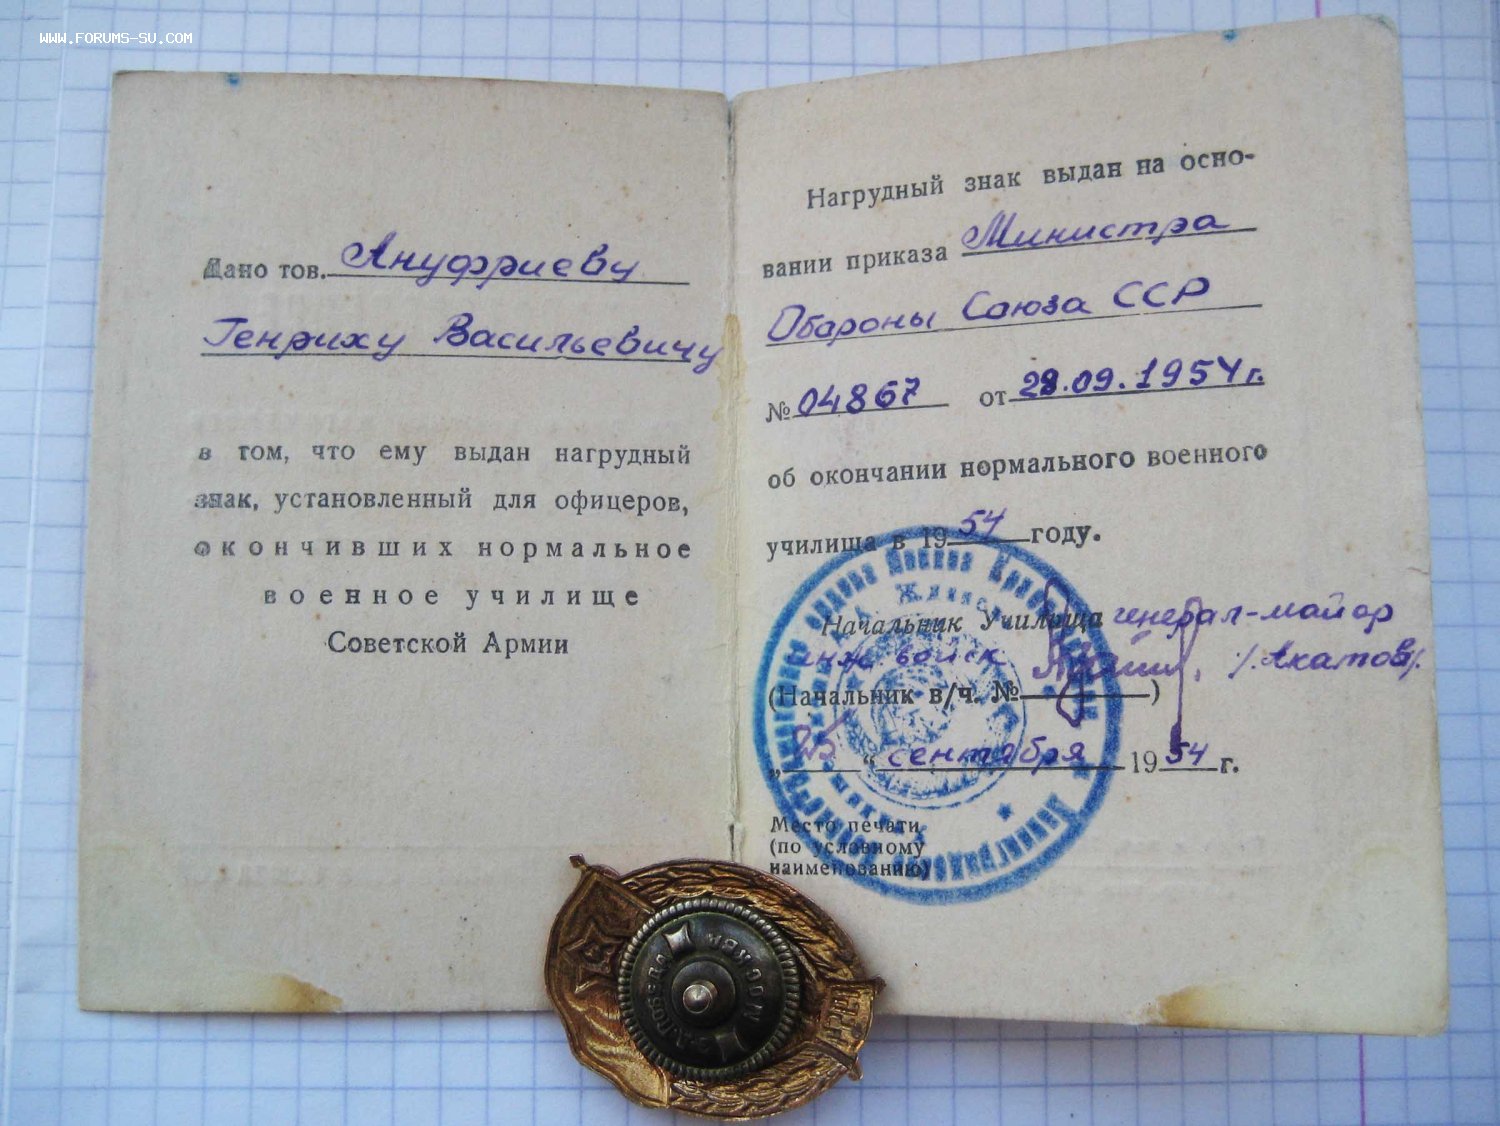 WWW.FORUMS-SU.COM
Дано тов. Ануфриеву
Генриху Васильевичу
в том, что ему выдан нагрудный
знак, установленный для офицеров,
окончивших нормальное
военное училище
Советской Армии
Нагрудный знак выдан на осно-
вании приказа Министра
Обороны Союза ССР
№ 04867 от 28.09.1954 г.
об окончании нормального военного
училища в 1954 году.
Начальник Училища генерал-майор
инж. войск /Акатов/.
(Начальник в/ч. № )
„25“ сентября 1954 г.
Место печати
(по условному
наименованию)
Ленинградское
ПОБЕДА
МОСКВА